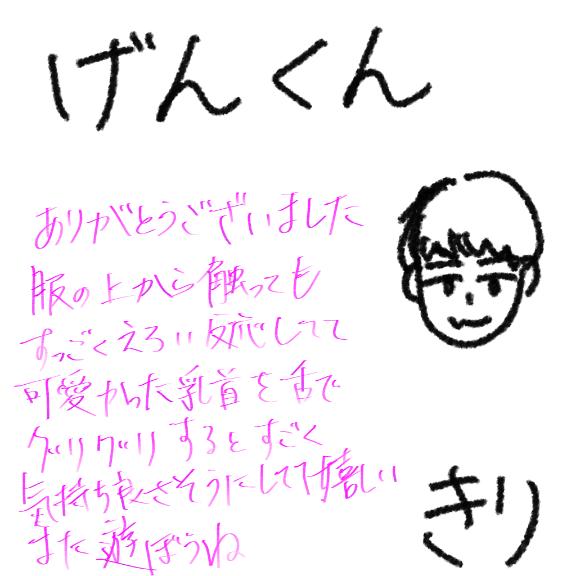 げんくん
ありがとうございました
服の上から触っても
すっごくえろい反応してて
可愛かった乳首を舌で
グリグリするとすごく
気持ち良さそうにしてて嬉しい
また遊ぼうね
きり